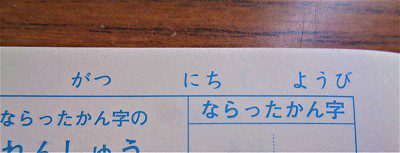 がつ にち ようび
ならったかん字の
ならったかん字
れんしゅう